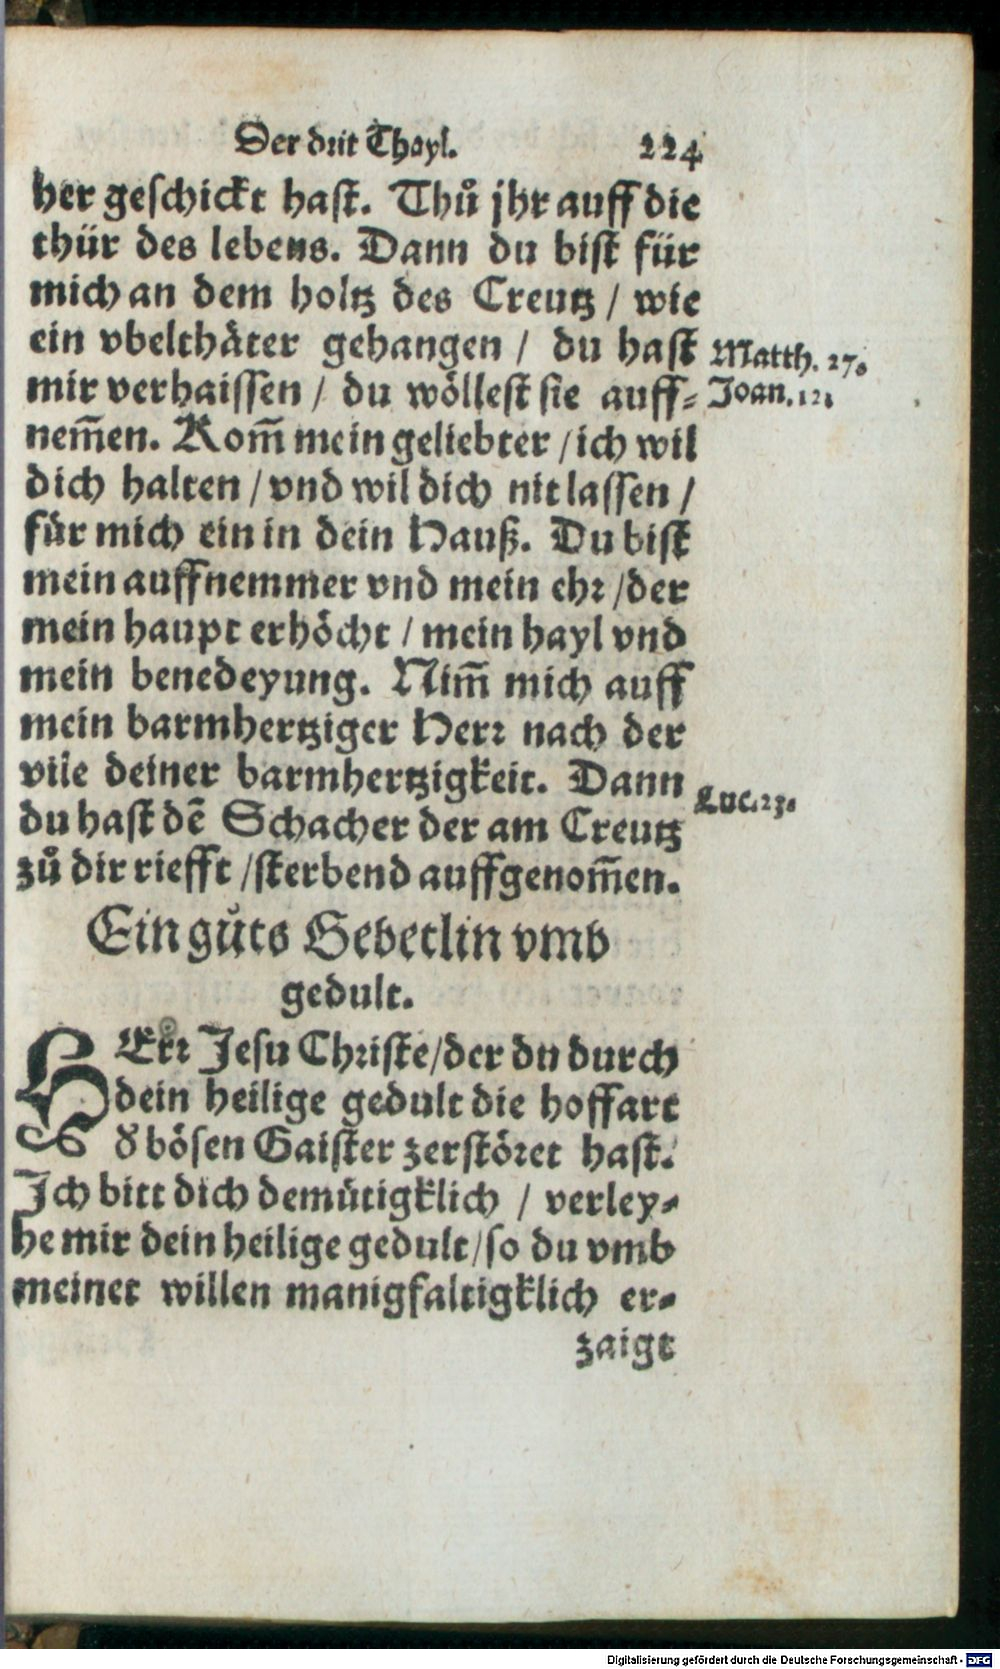 Der drit Thayl. 224
her geschickt hast. Thů jhr auff die
thür des lebens. Dann du bist für
mich an dem holtz des Creutz / wie
ein vbelthäter gehangen / du hast
Matth. 27.
mir verhaissen / du wöllest sie auff-
Joan. 12.
nem̃en. Kom̃ mein geliebter / ich wil
dich halten / vnd wil dich nit lassen /
für mich ein in dein Hauß. Du bist
mein auffnemmer vnd mein ehr / der
mein haupt erhöcht / mein hayl vnd
mein benedeyung. Nim̃ mich auff
mein barmhertziger Herr nach der
vile deiner barmhertzigkeit. Dann
Luc. 23.
du hast dẽ Schacher der am Creutz
zů dir riefft / sterbend auffgenom̃en.
Ein gůts Gebetlin vmb
gedult.
HErr Jesu Christe / der du durch
dein heilige gedult die hoffart
d bösen Gaister zerstöret hast.
Ich bitt dich demütigklich / verley-
he mir dein heilige gedult / so du vmb
meinet willen manigfaltigklich er-
zaigt
Digitalisierung gefördert durch die Deutsche Forschungsgemeinschaft - DFG